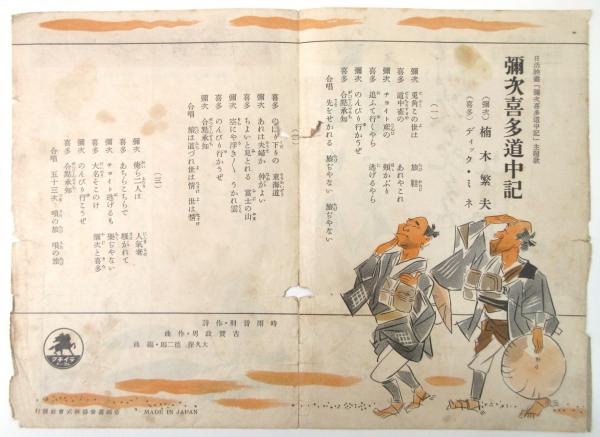 日活映畫「彌次喜多道中記」主題歌
彌次喜多道中記
(彌次) 楠木繁夫
(喜多) ディック・ミネ
(一)
彌次 兎角この世は 旅鞋
喜多 道中雀の あれやこれ
彌次 チョイト鳶の 頬かぶり
喜多 追ふて行くやら 逃げるやら
彌次 のんびり行かうぜ
喜多 合點承知
合唱 先をせかれる 旅ぢやない 旅ぢやない
喜多 のぼり下りの 東海道
彌次 あれは夫婦か 仲がよい
喜多 ちよいと見とれる 富士の山
彌次 空にや浮き/\ うかれ雲
喜多 のんびり行かうぜ
彌次 合點承知
合唱 旅は道づれ世は情 世は情
(三)
彌次 俺ら二人は 人氣者
喜多 あちらこちらで 騷がれて
彌次 チョイト逃げるも 樂ぢやない
喜多 大名そこのけ 彌次と喜多
彌次 のんびり行かうぜ
喜多 合點承知
合唱 五十三次 唄の旅 唄の旅
時雨音羽・作詩
古賀政男・作曲
大久保德二郎・編曲
テイチク
MADE IN JAPAN